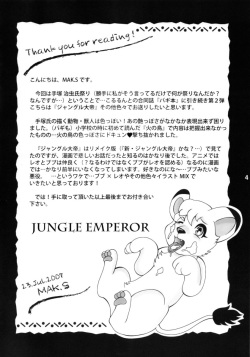 Thank you for reading!
こんにちは、MAK.Sです。
今回は手塚 治虫氏祭り（勝手に私がそう言ってるだけで何が祭りなんだか？
なんですが…）ということで…こるるんとの合同誌「バギ本」に引き続き第２弾
こちらは「ジャングル大帝」とその他色々でお送りしたいと思います。
手塚氏の描く動物・獣人は色っぽい！あの艶っぽさがなかなか表現出来ず困り
ました。（バギも）小学校の時に初めて読んだ「火の鳥」で内容は把握出来なかっ
たものの…火の鳥の色っぽさにドキュン♥撃ち抜かれました。
「ジャングル大帝」はリメイク版（「新・ジャングル大帝」かな？…）で見て
いたのですが、漫画で悲しいお話だったと知るのはかなり後でした。アニメでは
レオとブブは仲良く（？なるわけではなくブブがレオを認める）なるのに漫画
では…かなり初期で倒されてしまうんですよね…かなしー？ブブみたいな
悪役、…というワケで…ブブ × レオやその他色々イラスト MIX で
いきたいと思っております！
では！手に取って頂いた以上最後までお付き合い
下さい。
4
JUNGLE EMPEROR
23.Jul.2007
MAK.S